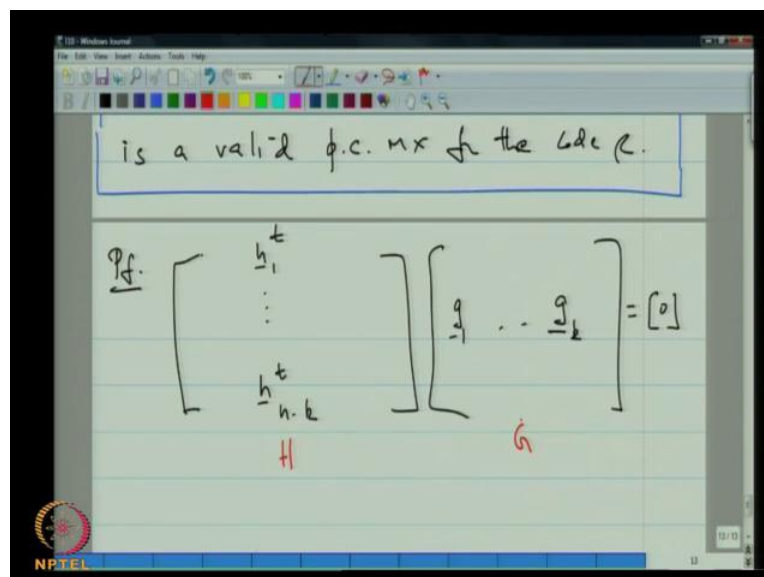 133 - Windows Journal
File Edit View Insert Actions Tools Help
is a valid p.c. mx for the code C.
Pf.
h₁ᵗ
⋮
hₙ₋ₖᵗ
g₁ . . gₖ
= [0]
H
G
13 / 13
13
NPTEL